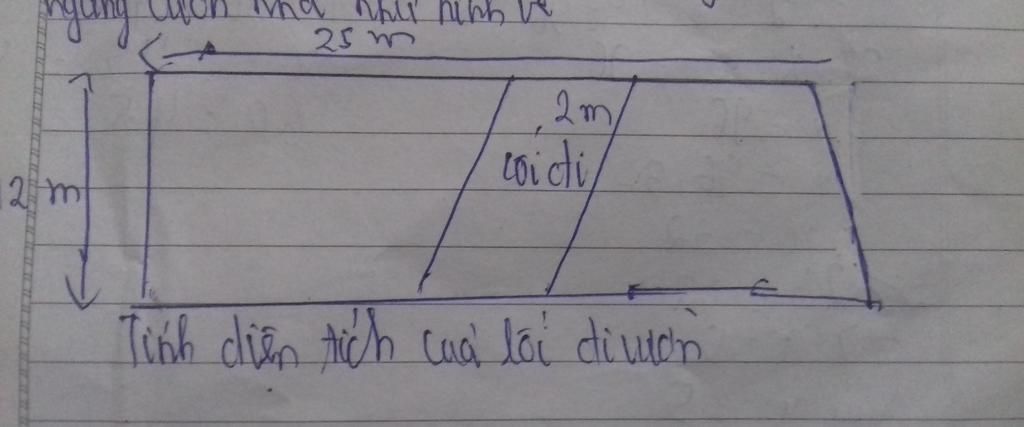 ngang như hình vẽ
25 m
2 m
2 m
lối đi
Tính diện tích của lối đi vườn